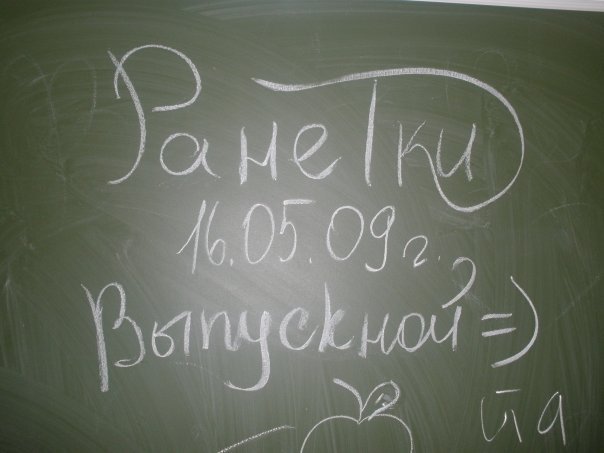 Ранетки
16.05.09 г.
Выпускной =)